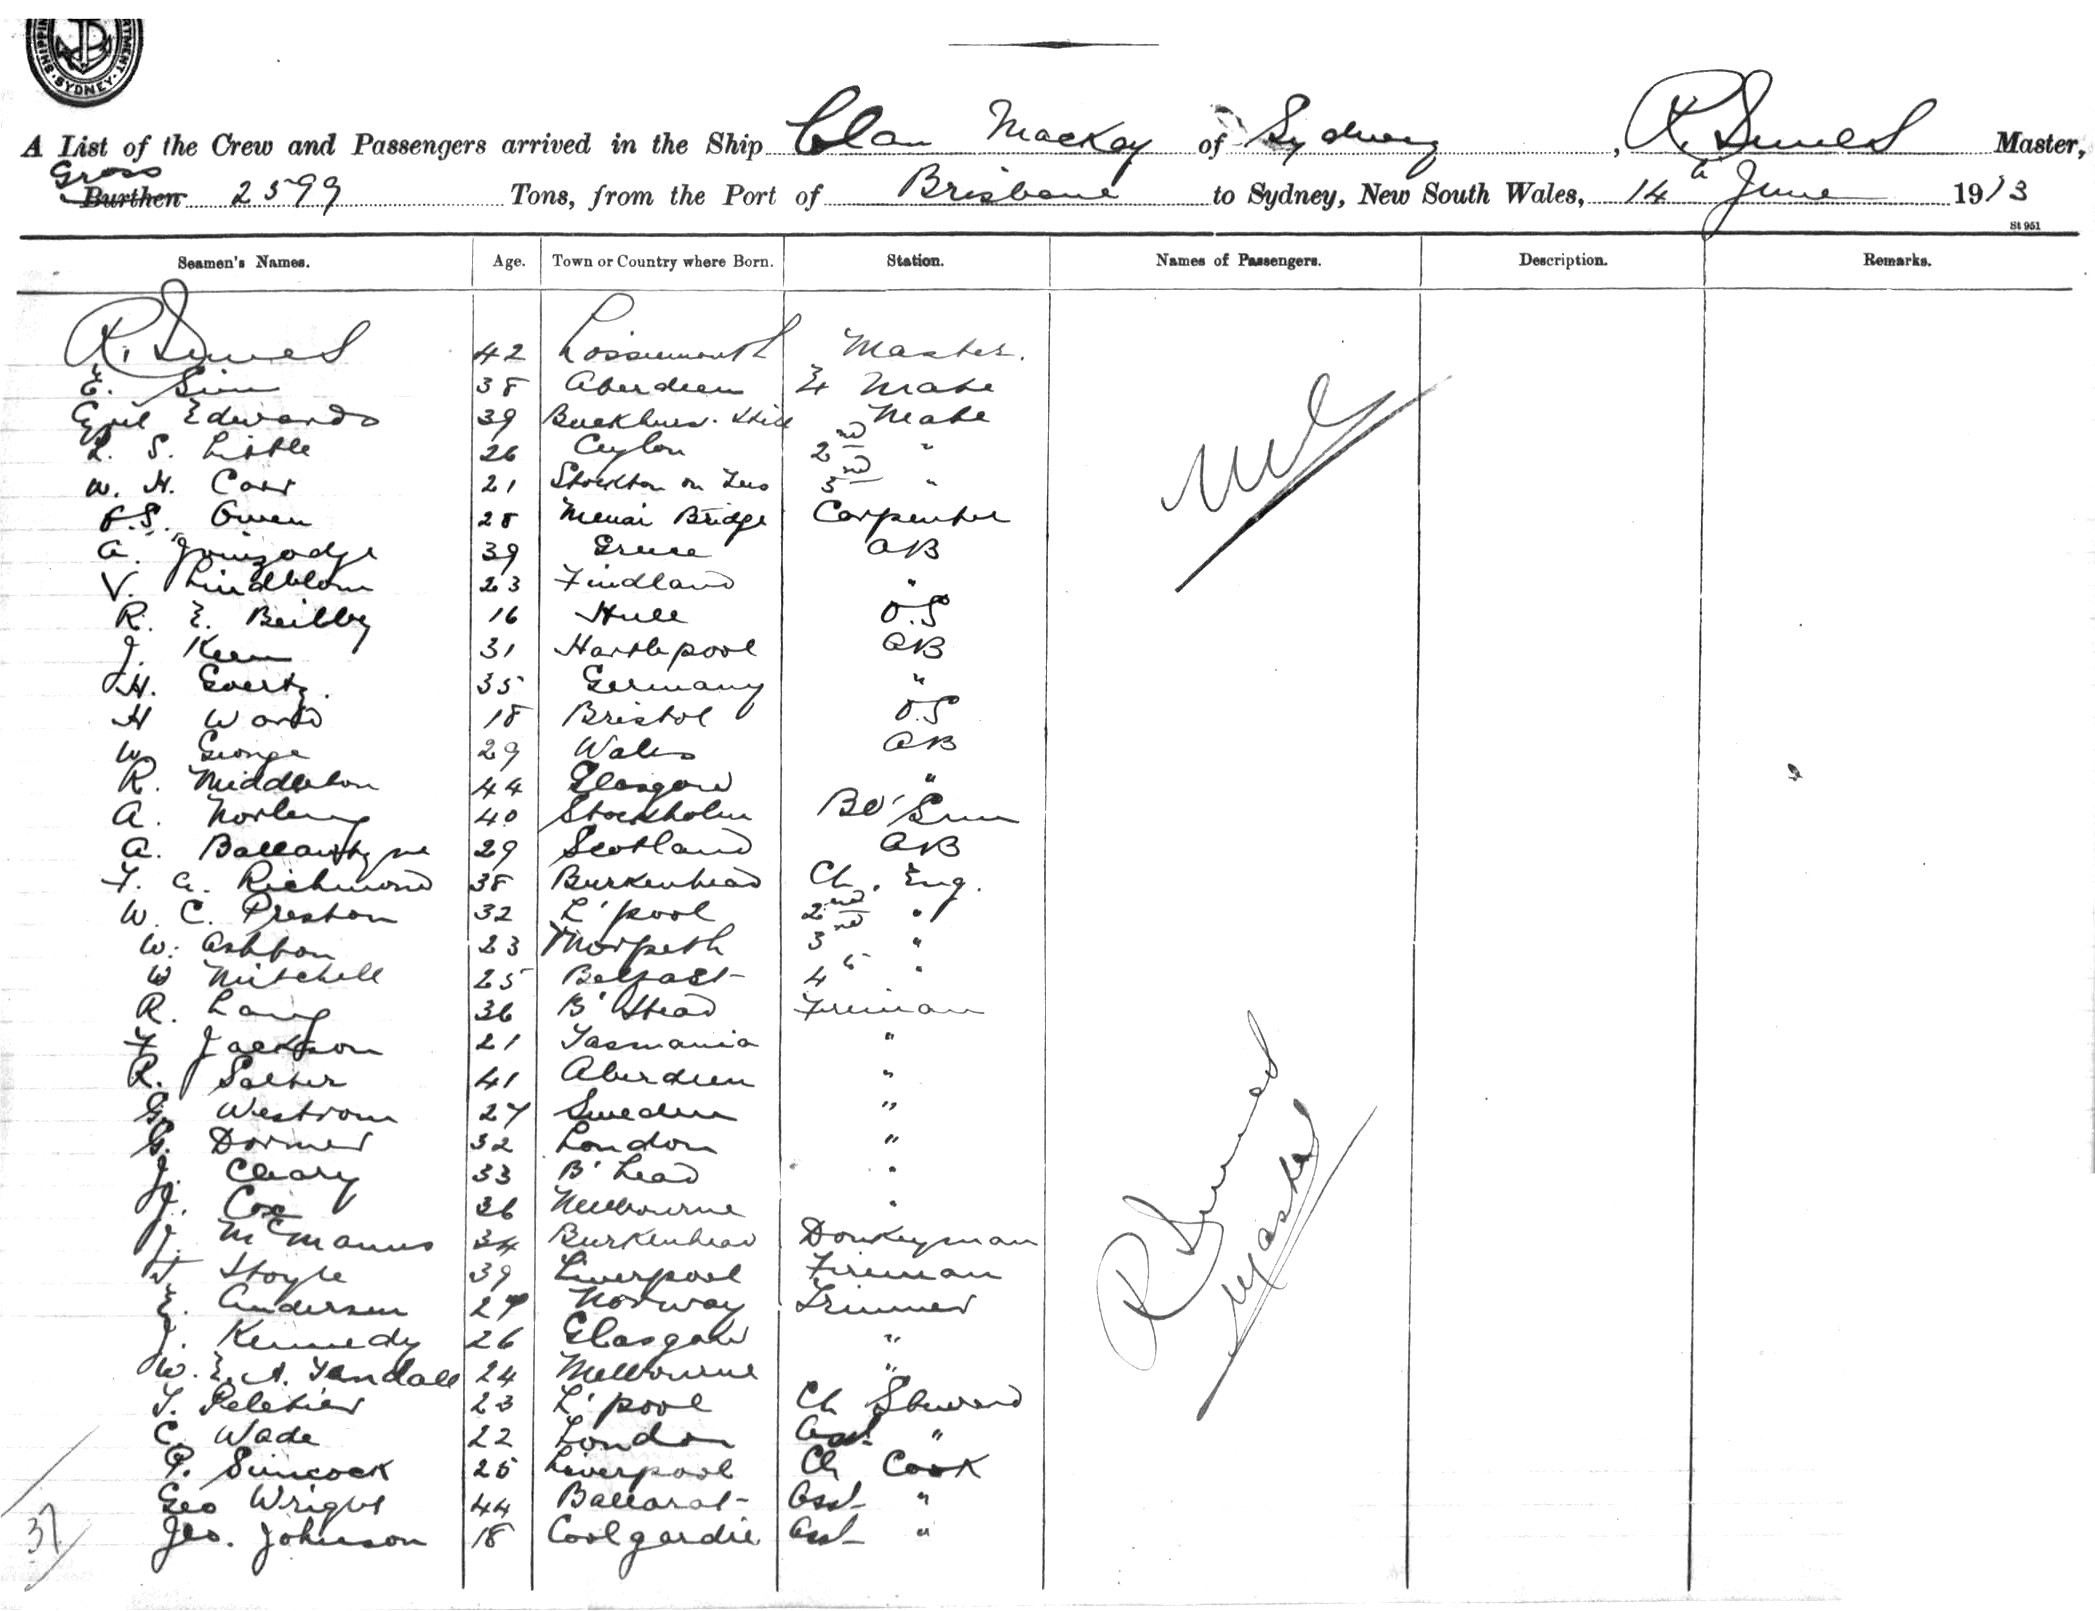 SHIPPING DEPARTMENT · SYDNEY ·
A List of the Crew and Passengers arrived in the Ship Clan Mackay of Sydney, R. Master,
Gross
Burthen 2599 Tons, from the Port of Brisbane to Sydney, New South Wales, 14th June 1913
St 951
Seamen's Names. Age. Town or Country where Born. Station. Names of Passengers. Description. Remarks.
R. 42 Lossiemouth Master.
E. Sim 38 Aberdeen Mate
Edwards 39 Mate
S. Little 26 Ceylon 2nd "
W. H. Carr 21 Stockton on Tees 3rd "
Owen 28 Menai Bridge Carpenter
A. 39 Greece AB
V. Lindblom 23 Findland "
R. E. Beilby 16 Hull O.S
J. Keen 31 Hartlepool AB
H. Evertz. 35 Germany "
H Ward 18 Bristol O.S
W George 29 Wales AB
R. Middleton 44 Glasgow "
A. Norberg 40 Stockholm Bo'Sun
A. Ballantyne 29 Scotland AB
A. Richmond 38 Burkenhead Ch. Eng.
W. C. Preston 32 L'pool 2nd "
W. Ashton 23 Morpeth 3rd "
W Mitchell 25 Belfast 4th "
R. Lang 36 B'Head Fireman
F Jackson 21 Tasmania "
R. Salter 41 Aberdeen "
G. Westrom 27 Sweden "
G. Dormer 32 London "
J. Cleary 33 B'head "
J. Cox 36 Melbourne "
J. McManus 34 Burkenhead Donkeyman
Hoyle 39 Liverpool Fireman
E. Andersen 27 Norway Trimmer
J. Kennedy 26 Glasgow "
W. E. A. 24 Melbourne "
T. Peletier 23 L'pool Ch Steward
C. Wade 22 London Asst "
P. Simcock 25 Liverpool Ch Cook
Geo Wright 44 Ballarat Asst "
Johnson 18 Coolgardie Asst "
Nil
R
Master
37